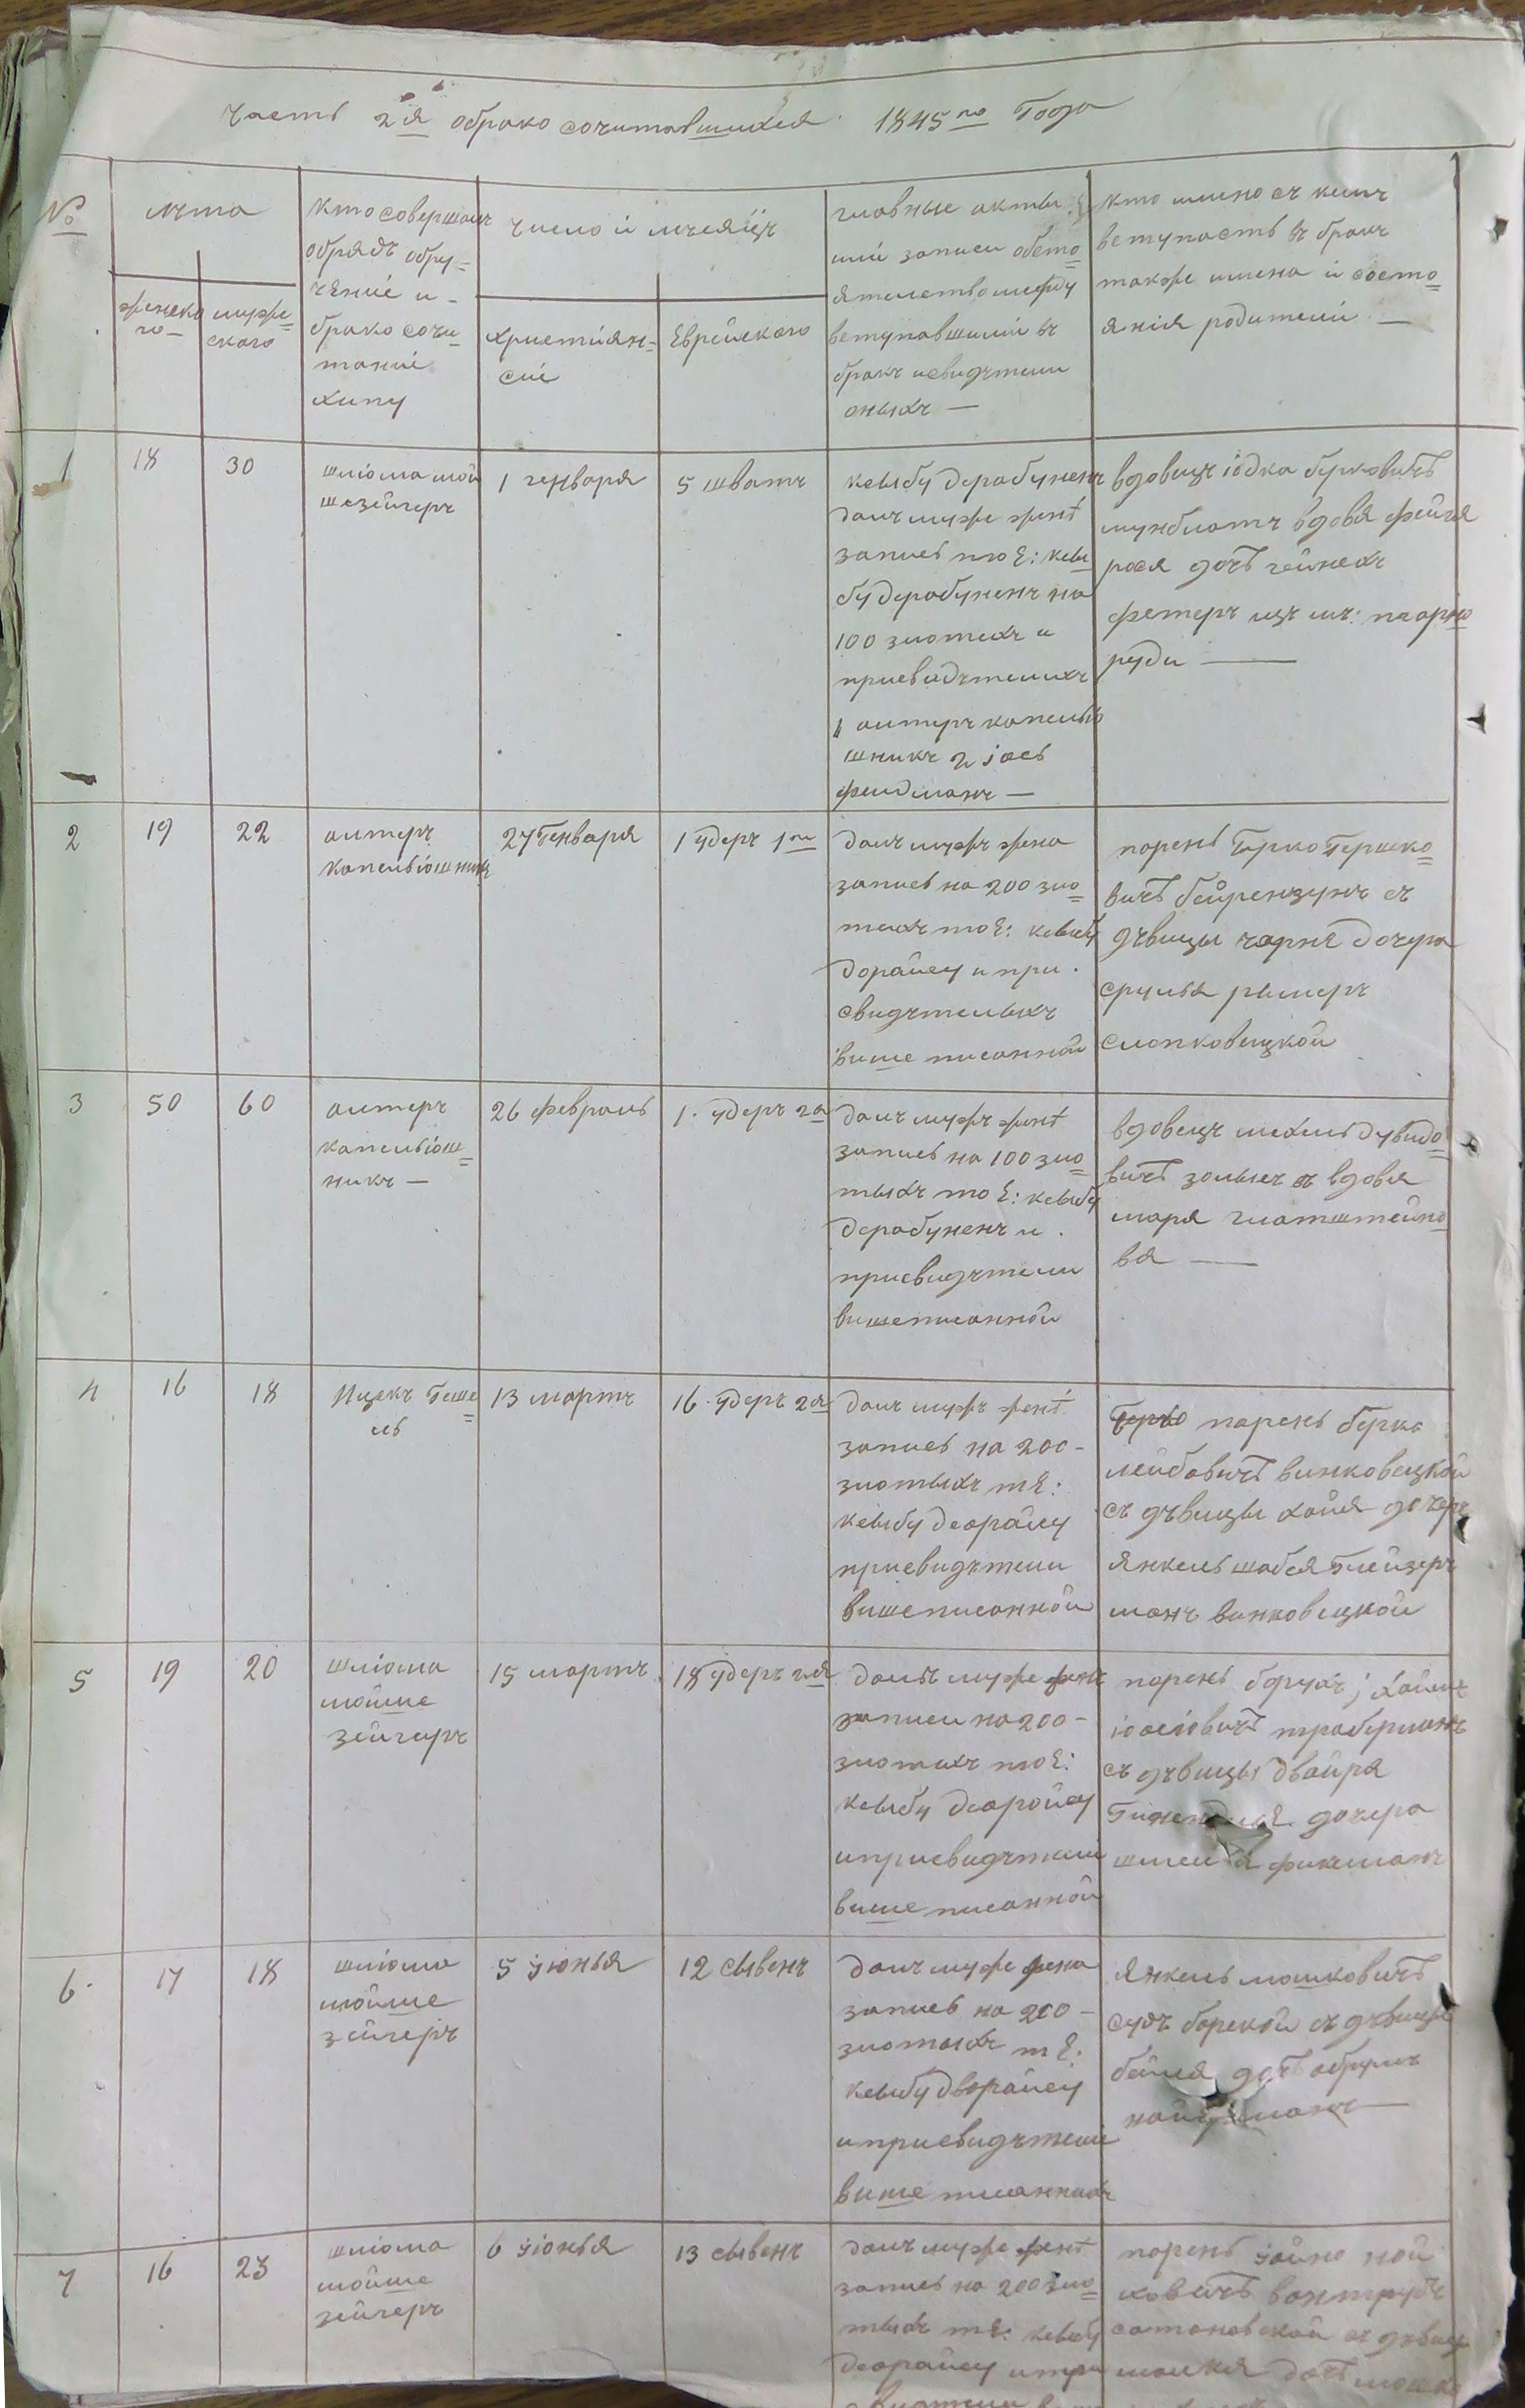 Часть 2я обракосочитавшихся 1845го Года
№
лѣта
женско
го
муже
ского
кто совершалъ
обрядъ обру
чение и
брако сочи
тание
хипу
число и мѣсяцъ
християн
сие
Еврейского
главные акты
или записи обсто
ятелство между
вступавшими въ
бракъ и свидѣтели
оныхъ —
кто имено съ кемъ
вступаетъ въ бракъ
также имена и состо
яния родители —
1
18
30
шліома мой
ше зейгеръ
1 генваря
5 шватъ
ксыбу дерабуненъ
далъ муже женѣ
запись то Е: ксы
бу дерабуненъ на
100 злотихъ и
присвидѣтелихъ
1 алтеръ капелю
шникъ 2 іось
фелдманъ —
вдовецъ іодка берковичъ
мунблатъ вдовя фейга
рося дочъ гейнехъ
фетеръ изъ мѣ:
руди —
2
19
22
алтеръ
капельіошникъ
27 Генваря
1 удеръ 1го
далъ мужъ жена
запись на 200 зло
тихъ то Е: ксыбу
дорайсу и при
свидѣтелыхъ
више писанной
парень Герко Гершко
вичъ бейрензунъ съ
дѣвицы чарнѣ дочера
срулья рымеръ
слопковецкой
3
50
60
алтеръ
капельіош
никъ —
26 февраль
1 удеръ 2го
далъ мужъ женѣ
запись на 100 зло
тыхъ то Е: ксыбу
дерабуненъ и
присвидѣтели
вишеписанной
вдовецъ михель дувидо
вичъ зольцъ съ вдовя
маря глатштейно
вя —
4
16
18
Ицекъ Геше
ль
13 мартъ
16 удеръ 2я
далъ мужъ женѣ
запись на 200
злотыхъ т Е:
ксыбу деорайсу
присвидѣтели
вишеписанной
Герко парень берко
лейбовичъ винковецкой
съ дѣвицы хайя дочеръ
янкель шабся Глейзеръ
манъ винковецкой
5
19
20
шліома
мойше
зейгеръ
15 мартъ
18 удеръ 2я
далъ муже женѣ
записи на 200
злотихъ то Е:
ксыбу деорайсу
и присвидѣтели
више писанной
парень борухъ хаимъ
іосіовичъ траберманъ
съ дѣвицы двойря
дочера
фикманъ
6
17
18
шліома
мойше
зейгеръ
5 іюнья
12 сывенъ
далъ муже жена
запись на 200
злотыхъ т Е:
ксыбу дворайсу
и присвидѣтели
више писаннихъ
янкель мошковичъ
барской съ дѣвице
бейля дочъ
7
16
23
шліома
мойше
зейгеръ
6 іюнья
13 сывенъ
далъ муже женѣ
запись на 200 зло
тыхъ т Е: ксыбу
деорайсу и при
парень іойно ной
ховичъ вонтрубъ
сатановской съ дѣвиц
малкя дочъ мошко